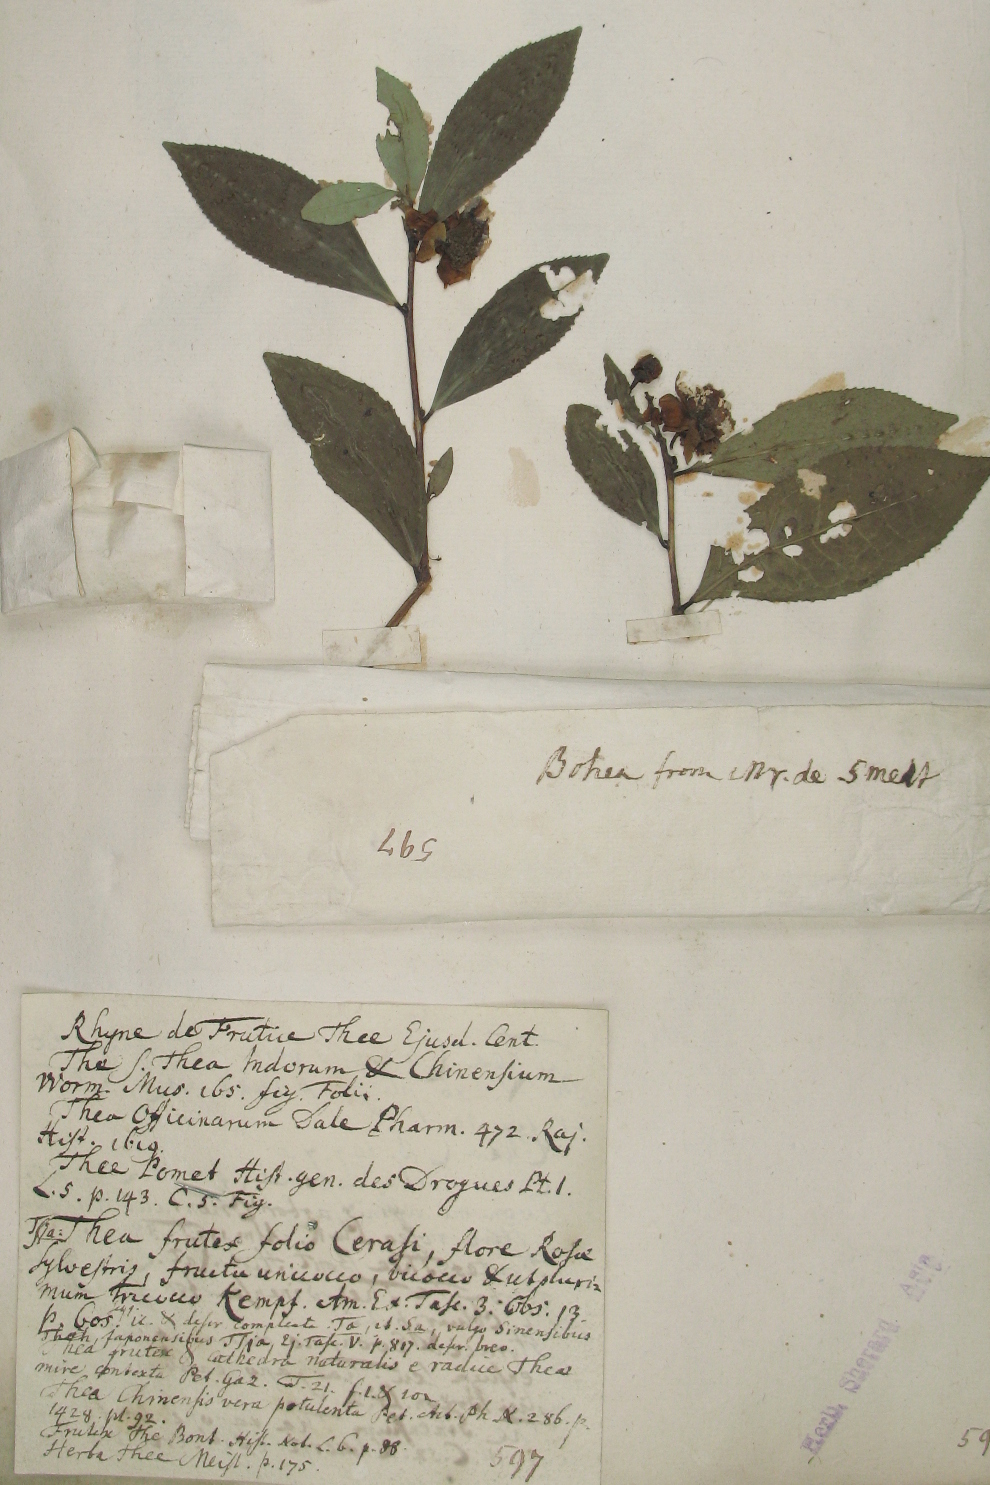 Bohea from Mr. de Smeet
597
Rhyne de Frutice Thee Ejusd. Cent.
The s. Thea Indorum & Chinensium
Worm. Mus. 165. fig. Folii.
Thea Officinarum Dale Pharm. 472. Raj.
Hist. 1619.
Thee Pomet Hist. gen. des Drogues Pt. 1.
L. 5. p. 143. C. 5. Fig.
Thea frutex folio Cerasi, flore Rosæ
sylvestris, fructu unicocco, bicocco & ut pluri-
mum tricocco Kempf. Am. Ex. Fasc. 3. Obs. 13.
p. 605. ic. & descr compleat. Tà, it. Sa, vulgo Sinensibus
Theh, Japonensibus Tsja, Ej. Fasc. V. p. 817. descr. brev.
Thea frutex Cathedra naturalis e radice Theæ
mire contexta Pet. Gaz. T. 21. f. 1. & 10.
Thea Chinensis vera potulenta Pet. Act. Ph. N. 286. p.
1428. pl. 92.
Frutex The Bont. Hist. Nat. L. 6. p. 88.
Herba Thee Meist. p. 175.
597
Herb. Sherard. Asia
59